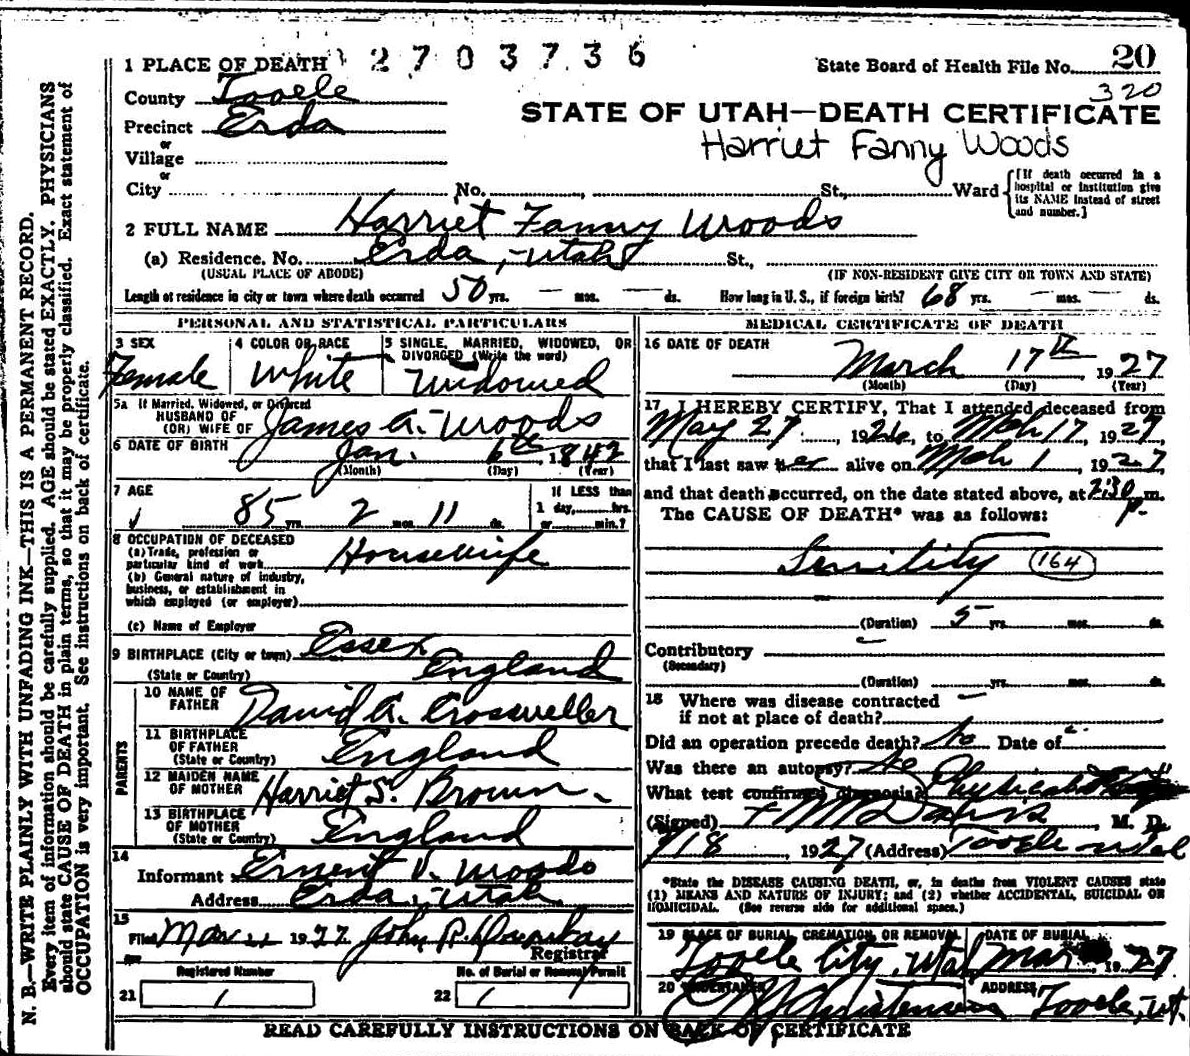 2703736
1 PLACE OF DEATH
State Board of Health File No. 20
320
County Tooele
STATE OF UTAH—DEATH CERTIFICATE
Precinct Erda
Harriet Fanny Woods
or
Village
or
City No. St., Ward
[If death occurred in a hospital or institution give its NAME instead of street and number.]
2 FULL NAME Harriet Fanny Woods
(a) Residence. No. Erda, Utah St.,
(USUAL PLACE OF ABODE) (IF NON-RESIDENT GIVE CITY OR TOWN AND STATE)
Length of residence in city or town where death occurred 50 yrs. — mos. — ds. How long in U. S., if foreign birth? 68 yrs. — mos. — ds.
PERSONAL AND STATISTICAL PARTICULARS
3 SEX
Female
4 COLOR OR RACE
White
5 SINGLE, MARRIED, WIDOWED, OR DIVORCED (Write the word)
Widowed
5a If Married, Widowed, or Divorced
HUSBAND OF
(OR) WIFE OF James A. Woods
6 DATE OF BIRTH Jan. 6th 1842
(Month) (Day) (Year)
7 AGE
85 yrs. 2 mos. 11 ds.
If LESS than
1 day, hrs.
or min.?
8 OCCUPATION OF DECEASED
(a) Trade, profession or
particular kind of work Housewife
(b) General nature of industry,
business, or establishment in
which employed (or employer)
(c) Name of Employer
9 BIRTHPLACE (City or town) Essex
(State or Country) England
PARENTS
10 NAME OF
FATHER David A. Crossweller
11 BIRTHPLACE
OF FATHER
(State or Country) England
12 MAIDEN NAME
OF MOTHER Harriet S. Brown
13 BIRTHPLACE
OF MOTHER
(State or Country) England
14
Informant Ernest V. Woods
Address Erda, Utah
15
Filed Mar 1927 John R.
Registrar
Registered Number No. of Burial or Removal Permit
21 1 22 1
MEDICAL CERTIFICATE OF DEATH
16 DATE OF DEATH
March 17th 1927
(Month) (Day) (Year)
17 I HEREBY CERTIFY, That I attended deceased from
May 27, 1926, to Mch 17, 1927,
that I last saw her alive on Mch 1, 1927,
and that death occurred, on the date stated above, at 2:30 p.m.
The CAUSE OF DEATH* was as follows:
Senility (164)
(Duration) 5 yrs. mos. ds.
Contributory
(Secondary)
(Duration) yrs. mos. ds.
18 Where was disease contracted
if not at place of death?
Did an operation precede death? No Date of
Was there an autopsy? No
What test confirmed diagnosis?
(Signed) M. D.
/18 1927 (Address) Tooele Utah
*State the DISEASE CAUSING DEATH, or, in deaths from VIOLENT CAUSES state
(1) MEANS AND NATURE OF INJURY; and (2) whether ACCIDENTAL, SUICIDAL OR
HOMICIDAL. (See reverse side for additional space.)
19 PLACE OF BURIAL CREMATION, OR REMOVAL
Tooele City, Utah
DATE OF BURIAL
Mar 1927
20 UNDERTAKER
Christensen
ADDRESS
Tooele, Ut.
READ CAREFULLY INSTRUCTIONS ON BACK OF CERTIFICATE
N. B.—WRITE PLAINLY WITH UNFADING INK—THIS IS A PERMANENT RECORD.
Every item of information should be carefully supplied. AGE should be stated EXACTLY. PHYSICIANS
should state CAUSE OF DEATH in plain terms, so that it may be properly classified. Exact statement of
OCCUPATION is very important. See instructions on back of certificate.